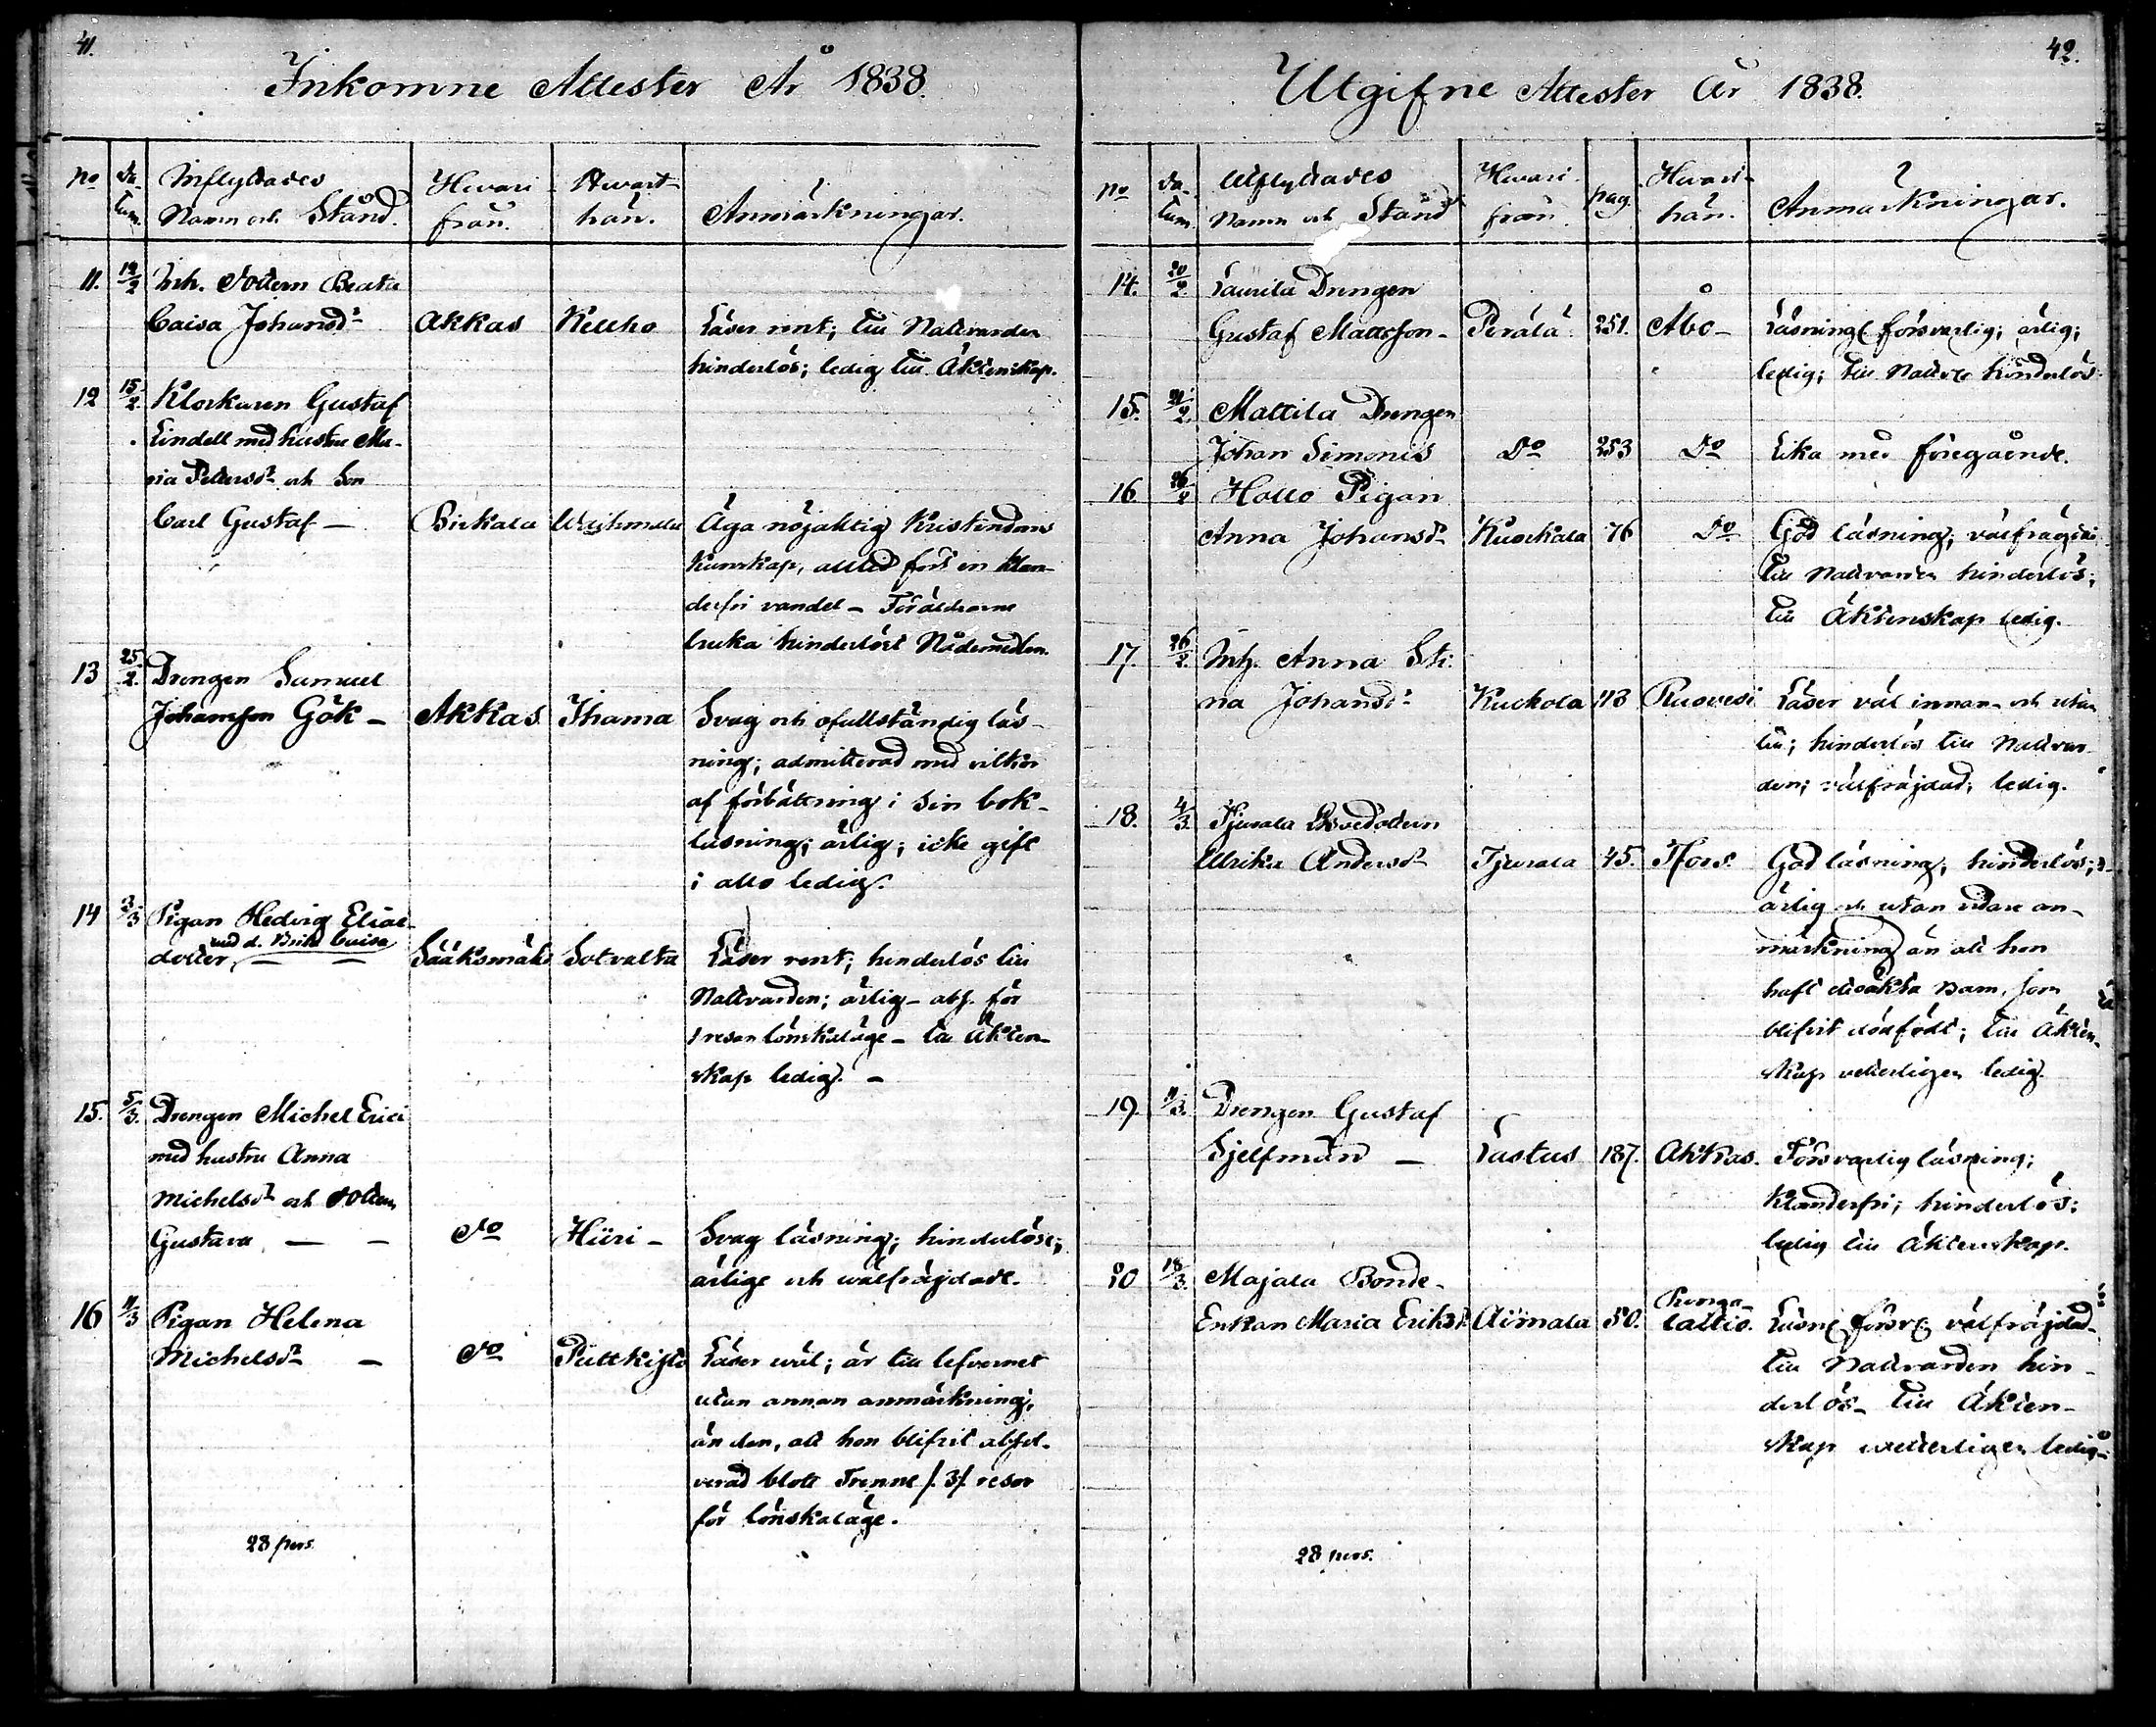 41.
Inkomne Attester År 1838.
No Da-tum. Inflyttades Namn och Stånd. Hvari-från. Hvart-hän. Anmärkningar.
11. 12/2 Inh. Dottern Beata
Caisa Johansdr Akkas Kellho Läser rent; till Nattvarden
hinderlös; ledig till Äktenskap.
12 15/2. Klockaren Gustaf
Lindell med hustru Ma-
ria Pettersdr och Son
Carl Gustaf — Birkala Wajhmala Äga nöjaktig Kristendoms
Kunskap, alltid fört en klan-
derfri vandel — Föräldrarne
bruka hinderlöst Nådemedlen.
13 25/2. Drengen Samuel
Johansson Gök — Akkas Ihama Svag och ofullständig läs-
ning; admitterad med vilkor
af förbättring i sin bok-
läsning; ärlig; icke gift
i allo ledig.
14 3/3 Pigan Hedvig Elias
med d. Brita Caisa
dotter, — — Sääksmäki Sotvalta Läser rent; hinderlös till
Nattvarden; ärlig — abs. för
1 resan lönskaläge — till Äkten-
skap ledig. —
15. 5/3. Drengen Michel Erici
med hustru Anna
Michelsdr och Dottren
Gustava — — Do Hiiri — Svag läsning; hinderlöse;
ärlige och wälfräjdade.
16 11/3 Pigan Helena
Michelsdr — Do Puttkisto Läser wäl; är till lefvernet
utan annan anmärkning,
än den, att hon blifvit absol-
verad blott Trenne /.3/. resor
för lönskaläge.
28 pers.
42.
Utgifne Attester År 1838.
No Da-tum. Utflyttades Namn och Stånd Hvari-från pag. Hvari-hän. Anmärkningar.
14. 20/2. Laurila Drengen
Gustaf Mattsson — Perälä 251. Åbo — Läsning försvarlig; ärlig;
ledig; till Nattv. hinderlös.
15. 21/2. Mattila Drengen
Johan Simonis Do 253 Do Lika med föregående.
16. 26/2 Hollo Pigan
Anna Johansdr Kuorkala 76 Do God läsning; välfrägdad
till Nattvarden hinderlös;
till Äktenskap ledig.
17. 26/2. Inh. Anna Sti-
na Johansdr Kuckola 113 Ruovesi Läser väl innan- och utan
till; hinderlös till Nattvar-
den; välfräjdad; ledig.
18. 4/3. Tjurala dottern
Ulrika Andersdr Tjurala 45. Hfors. God läsning; hinderlös;
ärlig och utan vidare an-
märkning än att hon
haft oäkta Barn, som
blifvit dödfödt; till Äkten-
skap vetterligen ledig.
19. 11/3. Drengen Gustaf
Sjelfman — Lastus 187. Akkas. Försvarlig läsning;
klanderfri; hinderlös;
ledig till Äktenskap.
20 18/3. Majala Bonde-
Enkan Maria Eriksdr Aimala 50. Kanga-laltio. Läsn. försv. välfräjdad —
till Nattvarden hin-
derlös — till Äkten-
skap wetterligen ledig —
28 pers.